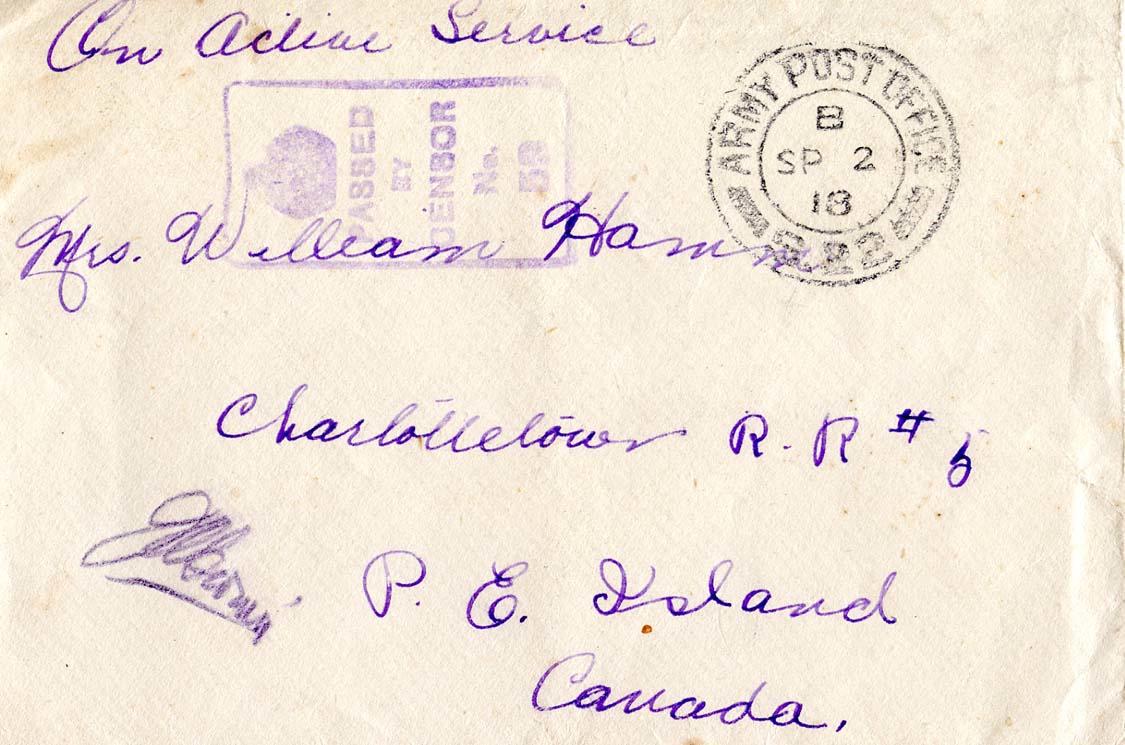 On Active Service
PASSED
BY
CENSOR
No.
ARMY POST OFFICE
B
SP 2
18
Mrs. William Hamm
Charlottetown R. R # 5
P. E. Island
Canada,